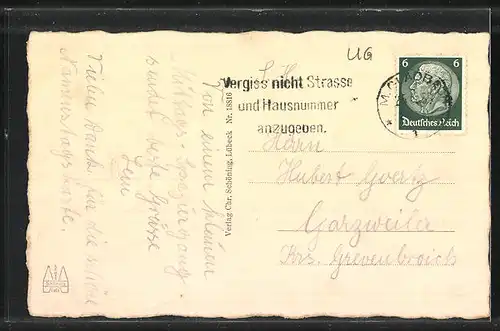 UG
6 6
Deutsches Reich
M. GLADBACH
Vergiss nicht Strasse
und Hausnummer
anzugeben.
Herrn
Hubert Goertz
Garzweiler
Krs. Grevenbroich
Verlag Chr. Schöning, Lübeck Nr. 18816
Von einem kleinen
Mittags-Spaziergang
sendet beste Grüsse
Leni
Vielen Dank für die schöne
Namenstagskarte.